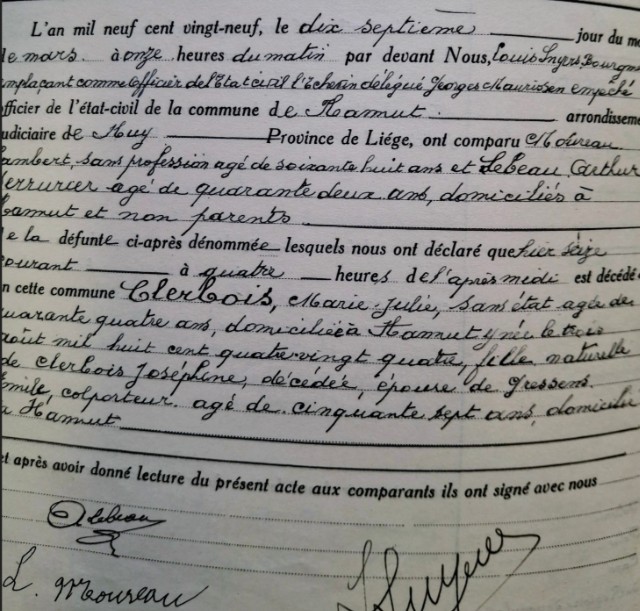 L'an mil neuf cent vingt-neuf, le dix septieme jour du
de mars. à onze heures du matin par devant Nous, Louis
comme officier de l'Etat civil l'Echevin délégué Georges empêché
officier de l'état-civil de la commune de Hamut. arrondisseme
udiciaire de Huy Province de Liége, ont comparu Moureau
ambert, sans profession agé de soixante huit ans et Lebeau, Arthur
errurier agé de quarante deux ans, domiciliés à
amut et non parents
e la défunte ci-après dénommée lesquels nous ont déclaré que hier seize
courant à quatre heures de l'après midi est décédé
n cette commune Clerbois, Marie-Julie, sans état agée de
uarante quatre ans, domiciliée à Hamut y née le trois
août mil huit cent quatre vingt quatre, fille naturelle
de Clerbois Joséphine, décédée, épouse de Gressens.
mile, colporteur. agé de cinquante sept ans, domicilié
à Hamut
et après avoir donné lecture du présent acte aux comparants ils ont signé avec nous
A Lebeau
L. Moureau